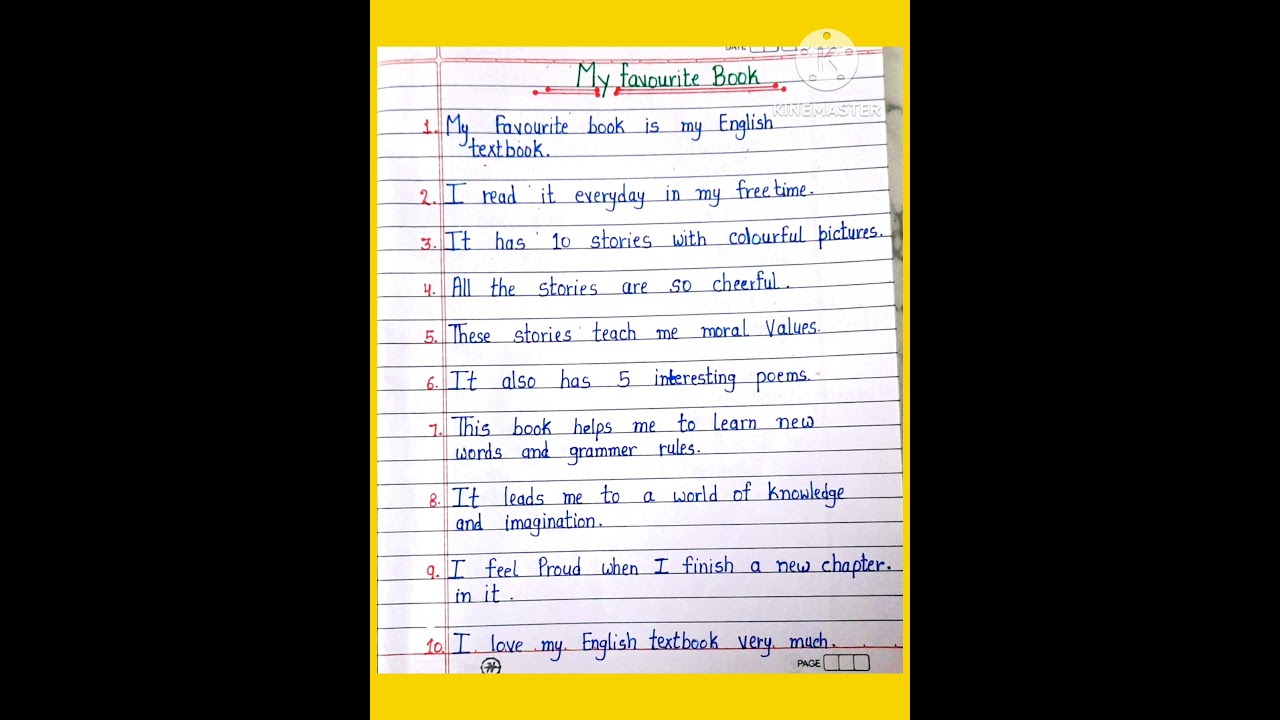 DATE
My favourite Book
K
KINEMASTER
1. My Favourite book is my English
textbook.
2. I read it everyday in my free time.
3. It has 10 stories with colourful pictures.
4. All the stories are so cheerful.
5. These stories teach me moral Values.
6. It also has 5 interesting poems.
7. This book helps me to learn new
words and grammer rules.
8. It leads me to a world of knowledge
and imagination.
9. I feel Proud when I finish a new chapter.
in it.
10. I love my English textbook very much.
PAGE